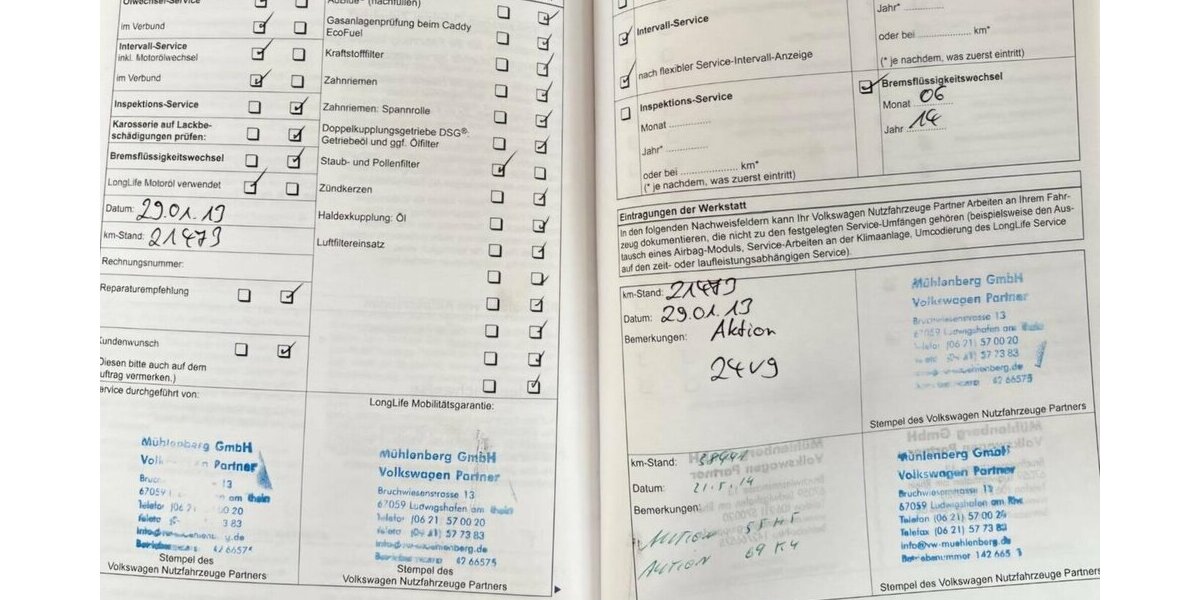 im Verbund
Intervall-Service
inkl. Motorölwechsel
im Verbund
Inspektions-Service
Karosserie auf Lackbe-
schädigungen prüfen:
Bremsflüssigkeitswechsel
LongLife Motoröl verwendet
Datum: 29.01.13
km-Stand: 21479
Rechnungsnummer:
Reparaturempfehlung
Kundenwunsch
(Diesen bitte auch auf dem
Auftrag vermerken.)
Service durchgeführt von:
Mühlenberg GmbH
Partner
13
67059 am
Telefon
Stempel des
Volkswagen Nutzfahrzeuge Partners
(nachfüllen)
Gasanlagenprüfung beim Caddy
EcoFuel
Kraftstofffilter
Zahnriemen
Zahnriemen: Spannrolle
Doppelkupplungsgetriebe DSG®:
Getriebeöl und ggf. Ölfilter
Staub- und Pollenfilter
Zündkerzen
Haldexkupplung: Öl
Luftfiltereinsatz
LongLife Mobilitätsgarantie:
Mühlenberg GmbH
Volkswagen Partner
Bruchwiesenstrasse 13
67059 Ludwigshafen am Rhein
Telefon (06 21) 57 00 20
57 73 83
42 66575
Stempel des
Volkswagen Nutzfahrzeuge Partners
Intervall-Service
nach flexibler Service-Intervall-Anzeige
Inspektions-Service
Monat
Jahr*
oder bei km*
(* je nachdem, was zuerst eintritt)
Jahr*
oder bei km*
(* je nachdem, was zuerst eintritt)
Bremsflüssigkeitswechsel
Monat 06
Jahr 14
Eintragungen der Werkstatt
In den folgenden Nachweisfeldern kann Ihr Volkswagen Nutzfahrzeuge Partner Arbeiten an Ihrem Fahr-
zeug dokumentieren, die nicht zu den festgelegten Service-Umfängen gehören (beispielsweise den Aus-
tausch eines Airbag-Moduls, Service-Arbeiten an der Klimaanlage, Umcodierung des LongLife Service
auf den zeit- oder laufleistungsabhängigen Service).
km-Stand: 21479
Datum: 29.01.13
Bemerkungen: Aktion
24V9
Mühlenberg GmbH
Volkswagen Partner
Bruchwiesenstrasse 13
67059 Ludwigshafen am Rhein
Telefon (06 21) 57 00 20
57 73 83
42 66575
Stempel des Volkswagen Nutzfahrzeuge Partners
km-Stand: 38441
Datum: 21.5.14
Bemerkungen:
Aktion
Aktion 69K4
Mühlenberg GmbH
Volkswagen Partner
Bruchwiesenstrasse 13
67059 Ludwigshafen am
Telefon (06 21) 57 00 20
Telefax (06 21) 57 73 83
info@vw-muehlenberg.de
Betriebsnummer 142 665
Stempel des Volkswagen Nutzfahrzeuge Partners